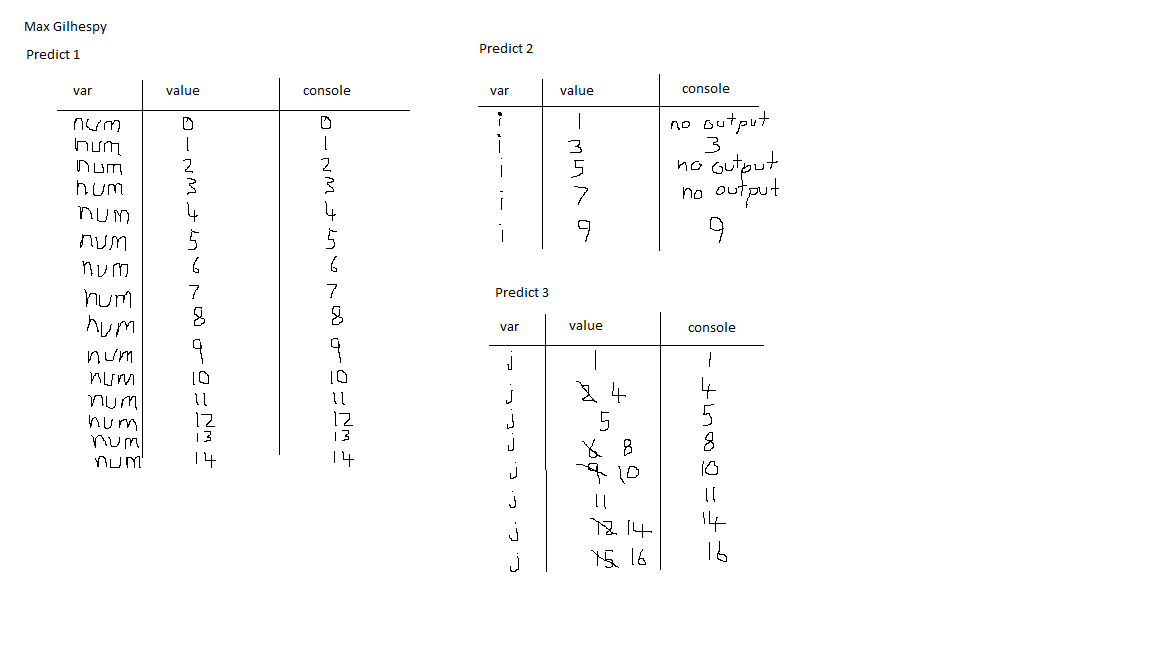 Max Gilhespy
Predict 1
var value console
num 0 0
num 1 1
num 2 2
num 3 3
num 4 4
num 5 5
num 6 6
num 7 7
num 8 8
num 9 9
num 10 10
num 11 11
num 12 12
num 13 13
num 14 14
Predict 2
var value console
i 1 no output
i 3 3
i 5 no output
i 7 no output
i 9 9
Predict 3
var value console
j 1 1
j 2 4 4
j 5 5
j 6 8 8
j 9 10 10
j 11 11
j 12 14 14
j 15 16 16